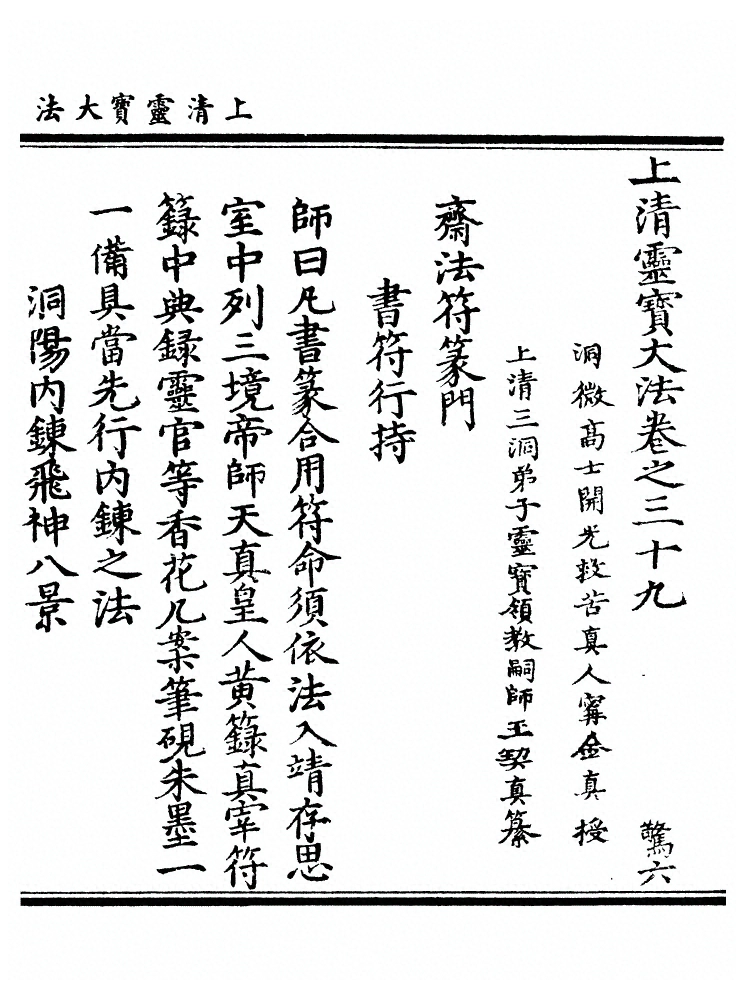 上清靈寶大法
上清靈寶大法卷之三十九　驚六
洞微高士開光救苦真人寗全真授
上清三洞弟子靈寶領教嗣師王契真纂
齋法符篆門
書符行持
師曰凡書篆合用符命須依法入靖存思
室中列三境帝師天真皇人黄籙真宰符
籙中典錄靈官等香花几案筆硯朱墨一
一備具當先行内鍊之法
洞陽内鍊飛神八景